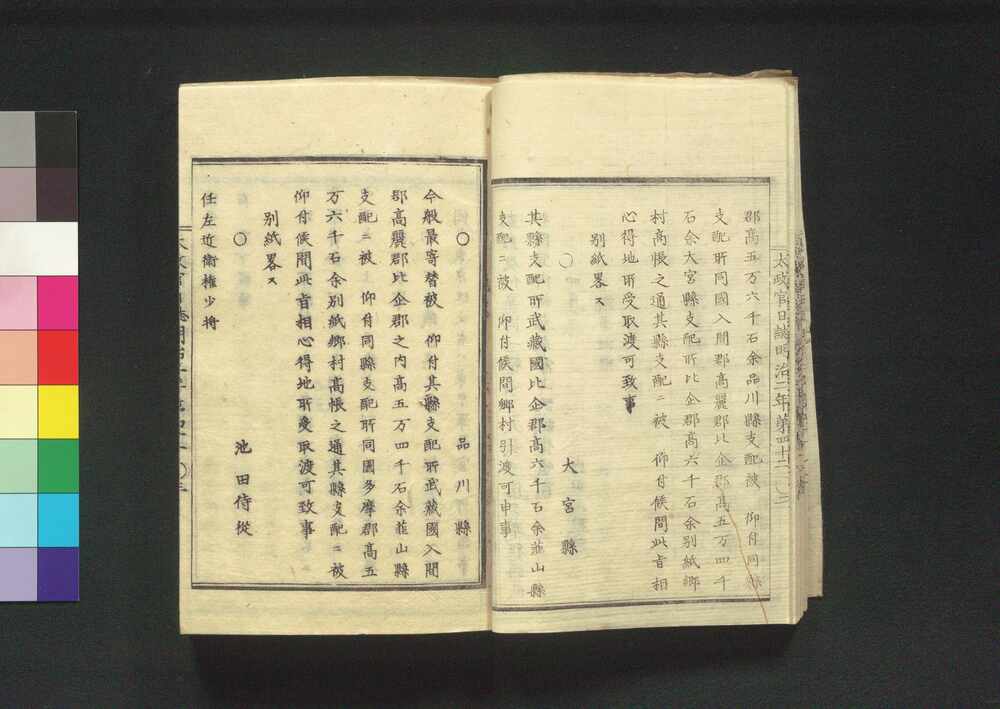 郡高五万六千石余品川縣支配被　仰付同縣
支配所同國入間郡高麗郡比企郡高五万四千
石余大宮縣支配所比企郡高六千石余別紙郷
村高帳之通其縣支配ニ被　仰付候間此旨相
心得地所受取渡可致事
別紙畧ス
〇　大宮縣
其縣支配所武藏國比企郡高六千石余韮山縣
支配ニ被　仰付候間郷村引渡可申事
〇　品川縣
今般最寄替被　仰付其縣支配所武藏國入間
郡高麗郡比企郡之内高五万四千石余韮山縣
支配ニ被　仰付同縣支配所同国多摩郡高五
万六千石余別紙郷村高帳之通其縣支配ニ被
仰付候間此旨相心得地所受取渡可致事
別紙畧ス
〇　池田侍從
任左近衛權少将
太政官日誌明治二年第四十二〇三